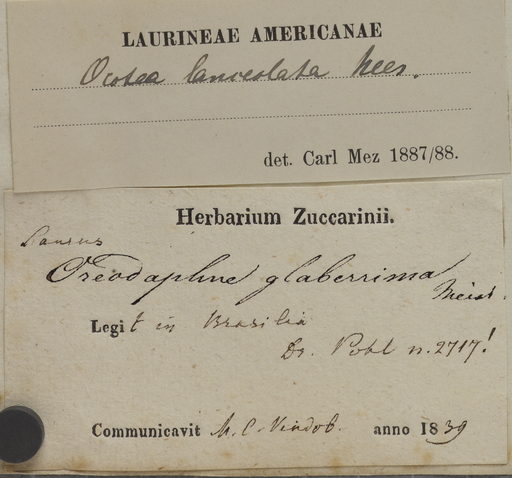 LAURINEAE AMERICANAE
Ocotea lanceolata Nees.
det. Carl Mez 1887/88.
Herbarium Zuccarinii.
Laurus
Oreodaphne glaberrima
Meisn.
Legit in Brasilia
Dr. Pohl n. 2717!
Communicavit M. C. Vindob. anno 1839